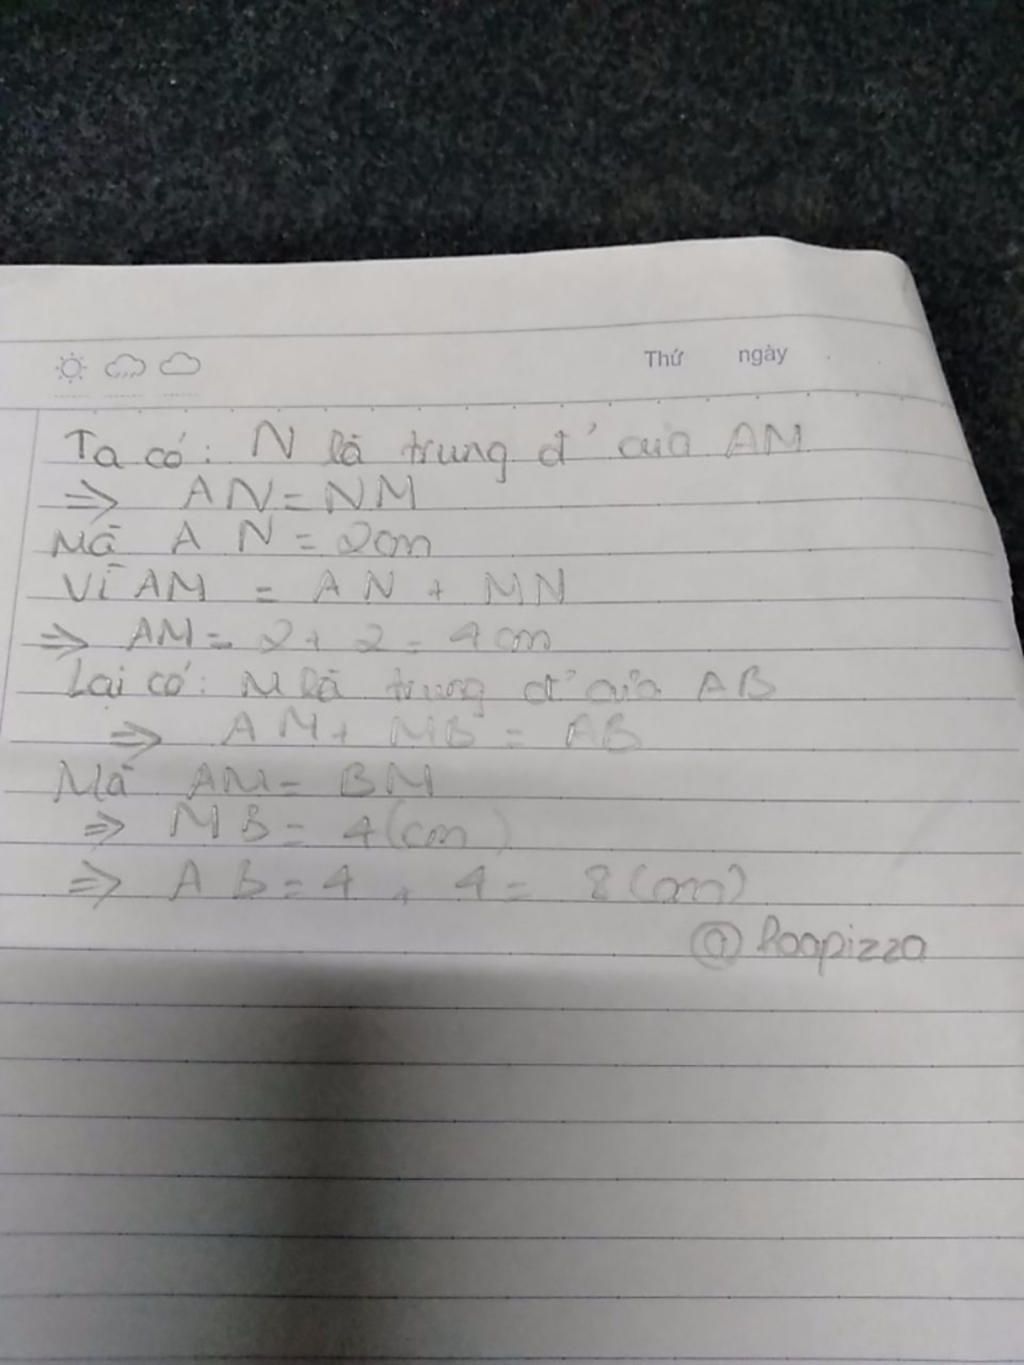 Thứ ngày
Ta có: N là trung đ' của AM
=> AN = NM
Mà AN = 2cm
Vì AM = AN + MN
=> AM = 2 + 2 = 4cm
Lại có: M là trung đ' của AB
=> AM + MB = AB
Mà AM = BM
=> MB = 4(cm)
=> AB = 4 + 4 = 8(cm)